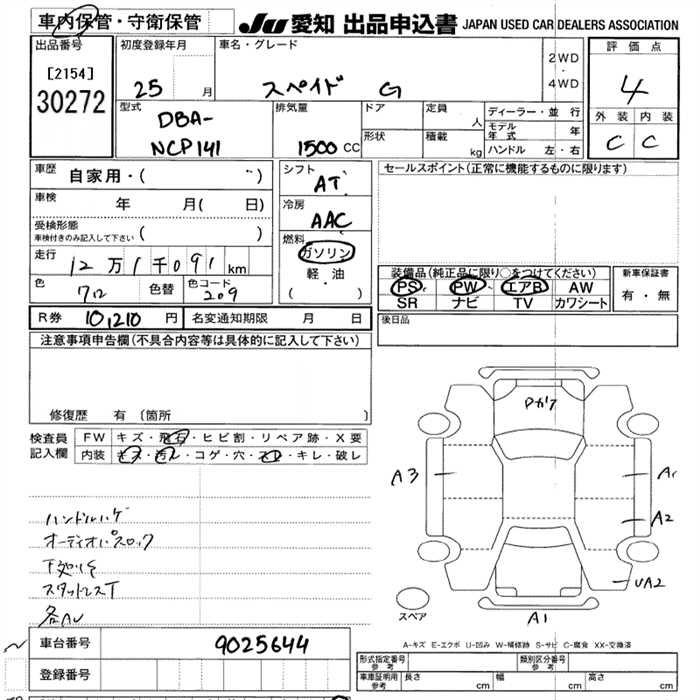 車内保管・守衛保管
JU 愛知 出品申込書 JAPAN USED CAR DEALERS ASSOCIATION
出品番号
[2154]
30272
初度登録年月
25 月
車名・グレード
スペイド G
2WD
・
4WD
評価点
4
外装 内装
C C
型式
DBA-
NCP141
排気量
1500 CC
ドア
形状
定員
人
積載
kg
ディーラー・並行
モデル年式 年
ハンドル 左・右
車歴
自家用・( )
車検 年 月( 日)
受検形態
車検付きのみ記入して下さい ( )
走行
12万1千091 km
色
色替
色コード
209
シフト
AT
冷房
AAC
燃料
ガソリン
軽・油
( )
セールスポイント(正常に機能するものに限ります)
装備品(純正品に限り○をつけてください)
PS PW エアB AW
SR ナビ TV カワシート
新車保証書
有・無
R券 10,210 円 名変通知期限 月 日
後日品
注意事項申告欄(不具合内容等は具体的に記入して下さい)
修復歴 有 〔箇所 〕
検査員
記入欄
FW キズ・飛石・ヒビ割・リペア跡・X要
内装 キズ・汚レ・コゲ・穴・スレ・キレ・破レ
ハンドルハゲ
スタッドレスT
A3
A1
A2
UA2
A1
スペア
A-キズ E-エクボ U-凹み W-補修跡 S-サビ C-腐食 XX-交換済
車台番号 9025644
登録番号
形式指定番号
参考
類別区分番号
参考
車庫証明用
参考
長さ cm 幅 cm 高さ cm